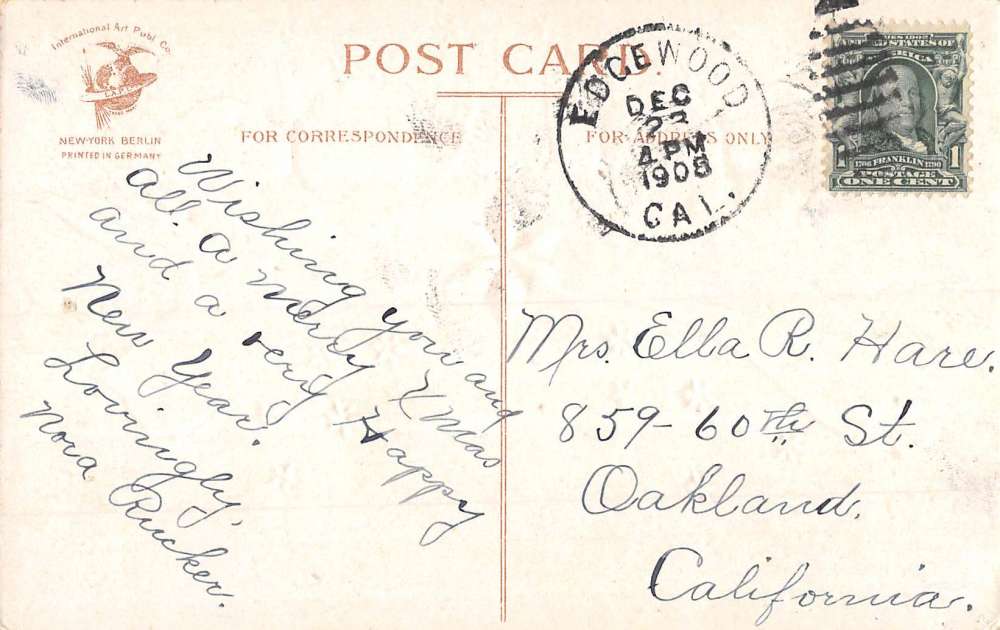 International Art Publ. Co.
NEW-YORK BERLIN
PRINTED IN GERMANY
POST CARD.
FOR CORRESPONDENCE
FOR ADDRESS ONLY
EDGEWOOD
DEC
4 PM
1908
CAL.
FRANKLIN
POSTAGE
1 ONE CENT 1
Wishing you and
all a merry Xmas
and a very Happy
New Year.
Lovingly,
Nora Rucker.
Mrs. Ella R. Hare.
859-60th St.
Oakland,
California.